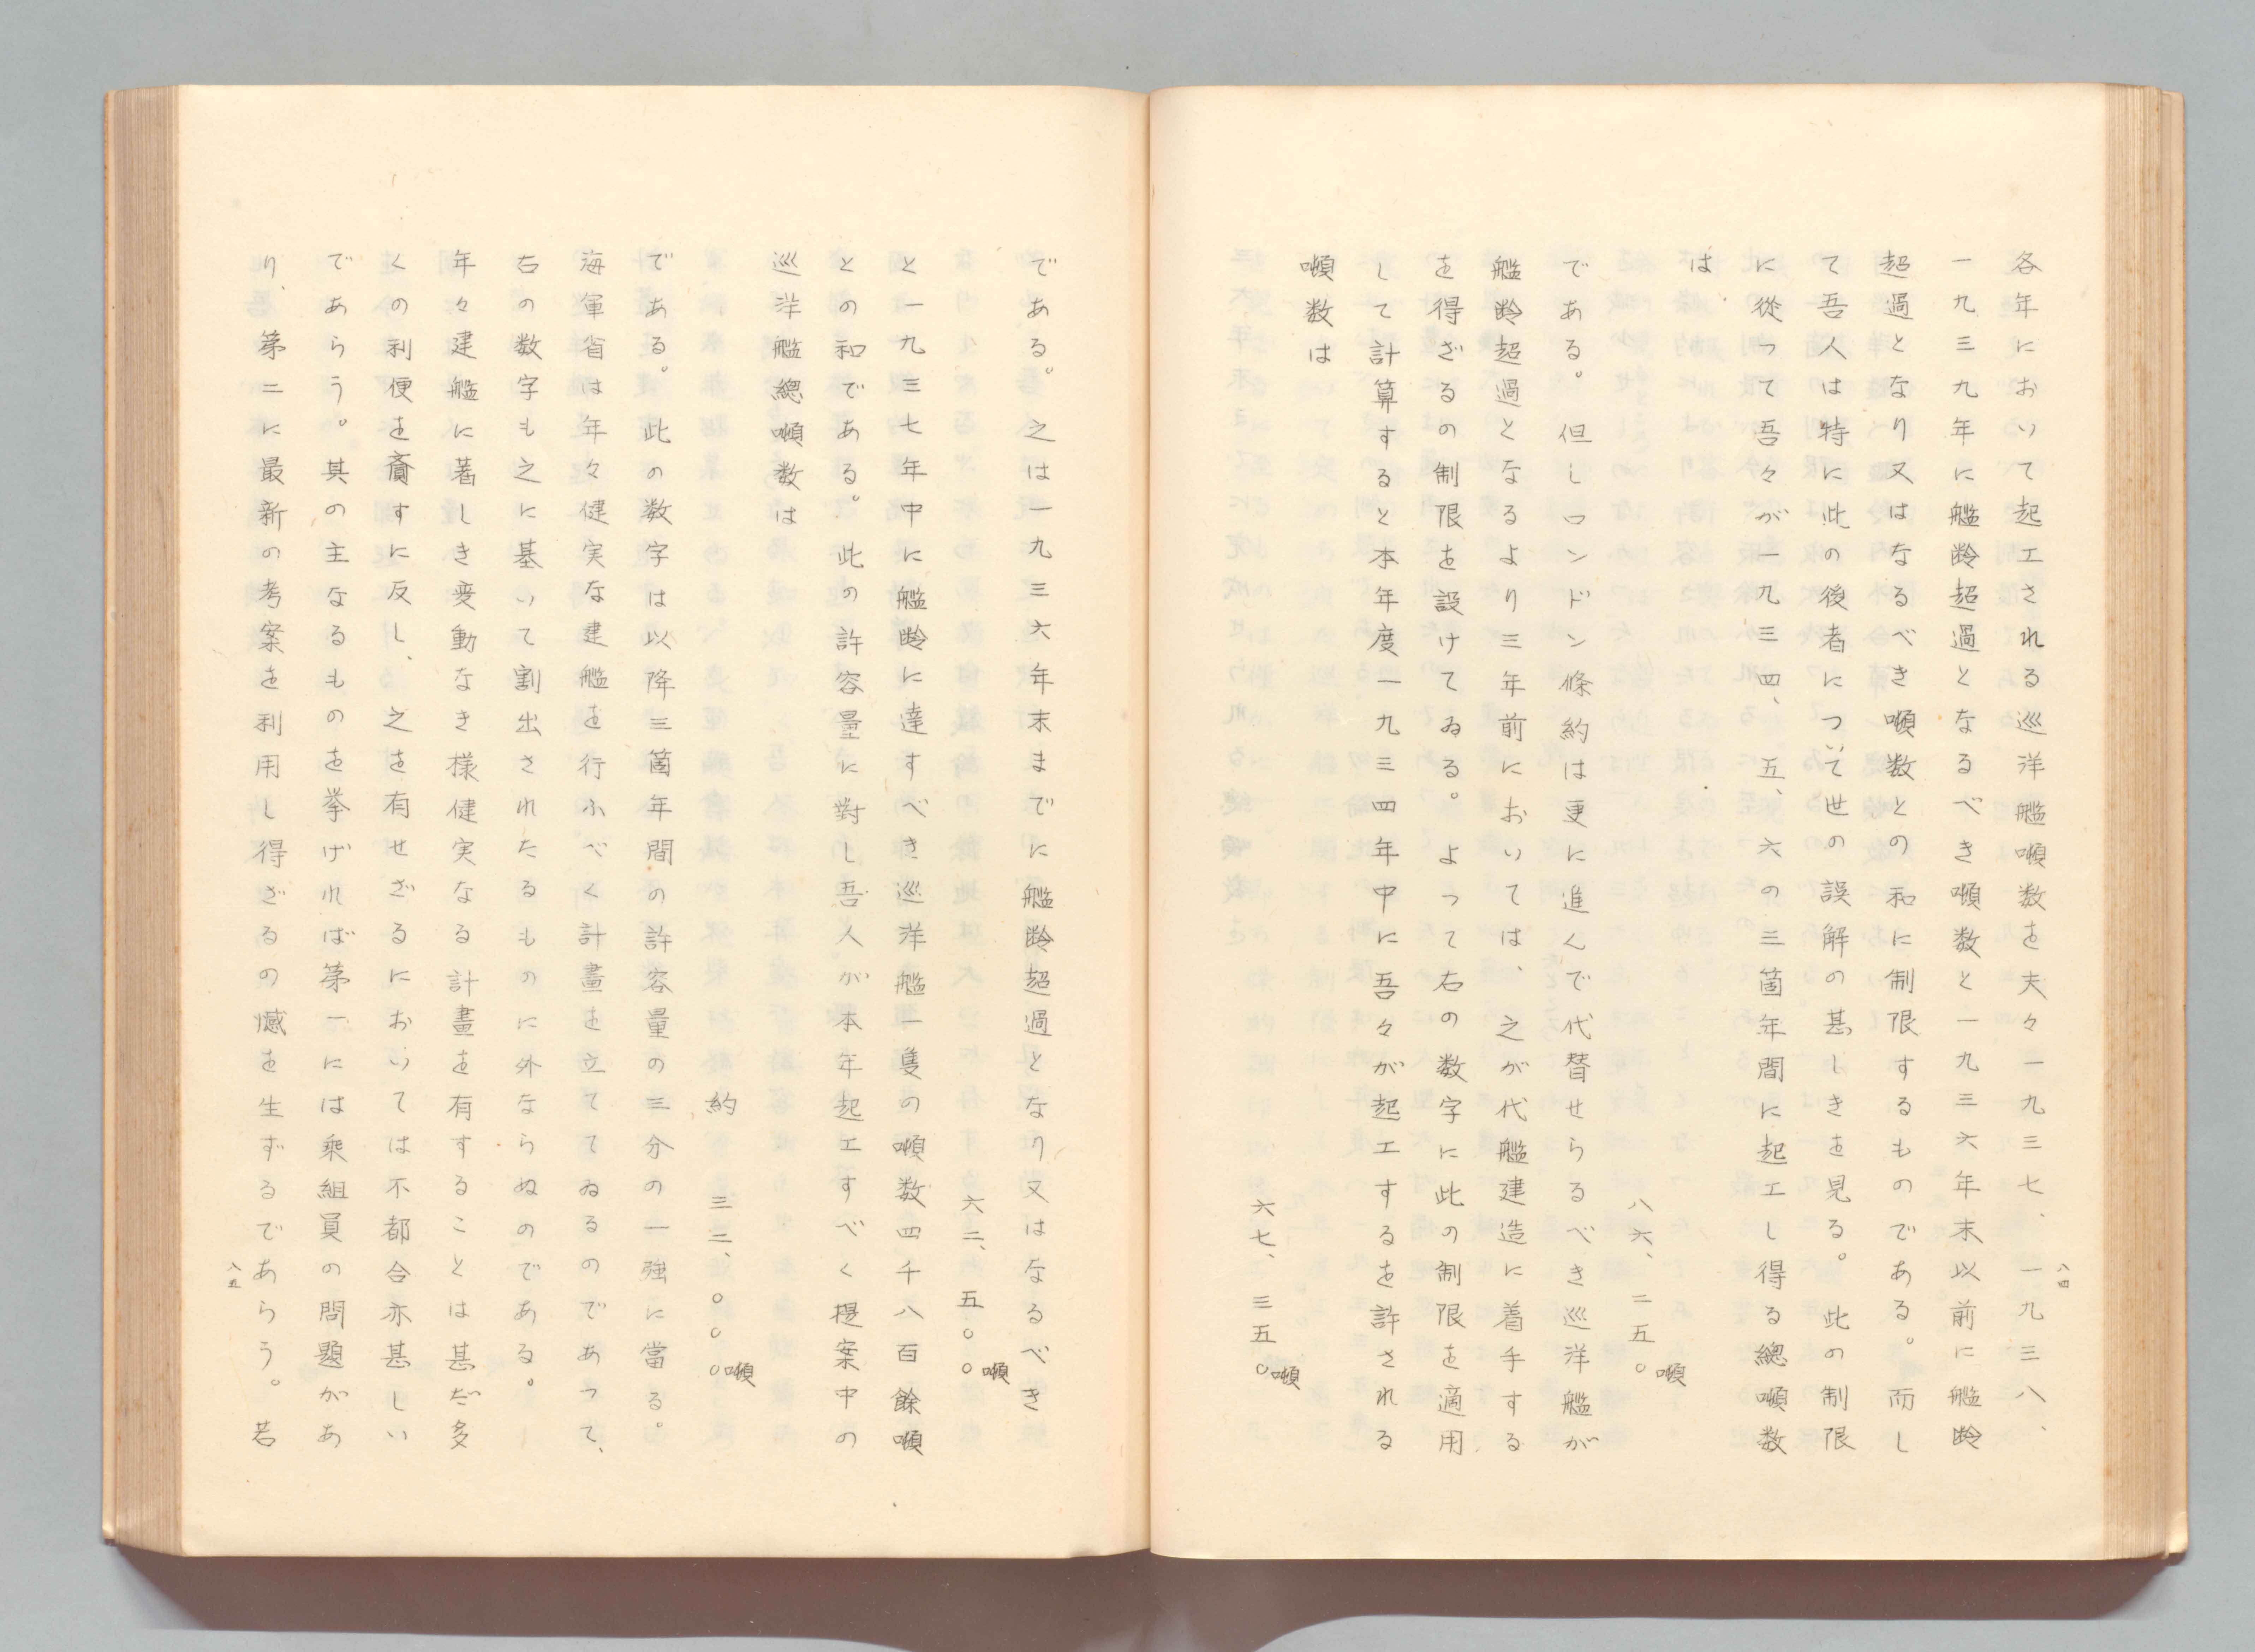 各年において起工される巡洋艦噸数を夫々一九三七、一九三八、
一九三九年に艦齢超過となるべき噸数と一九三六年末以前に艦齢
超過となり又はなるべき噸数との和に制限するものである。而し
て吾人は特に此の後者について世の誤解の甚しきを見る。此の制限
に従って吾々が一九三四、五、六の三箇年間に起工し得る總噸数
は
八六、二五〇噸
である。但しロンドン條約は更に進んで代替せらるべき巡洋艦が
艦齢超過となるより三年前においては、之が代艦建造に着手する
を得ざるの制限を設けてゐる。よって右の数字に此の制限を適用
して計算すると本年度一九三四年中に吾々が起工するを許される
噸数は
六七、三五〇噸
八四
である。之は一九三六年末までに艦齢超過となり又はなるべき
六二、五〇〇噸
と一九三七年中に艦齢に達すべき巡洋艦一隻の噸数四千八百餘噸
との和である。此の許容量に對し吾人が本年起工すべく提案中の
巡洋艦總噸数は
約 三三、〇〇〇噸
である。此の数字は以降三箇年間の許容量の三分の一強に當る。
海軍省は年々健実な建艦を行ふべく計畫を立ててゐるのであって、
右の数字も之に基いて割出されたるものに外ならぬのである。
年々建艦に著しき変動なき様健実なる計畫を有することは甚だ多
くの利便を齎すに反し、之を有せざるにおいては不都合亦甚しい
であらう。其の主なるものを挙げれば第一には乘組員の問題があ
り、第二に最新の考案を利用し得ざるの憾を生ずるであらう。若
八五